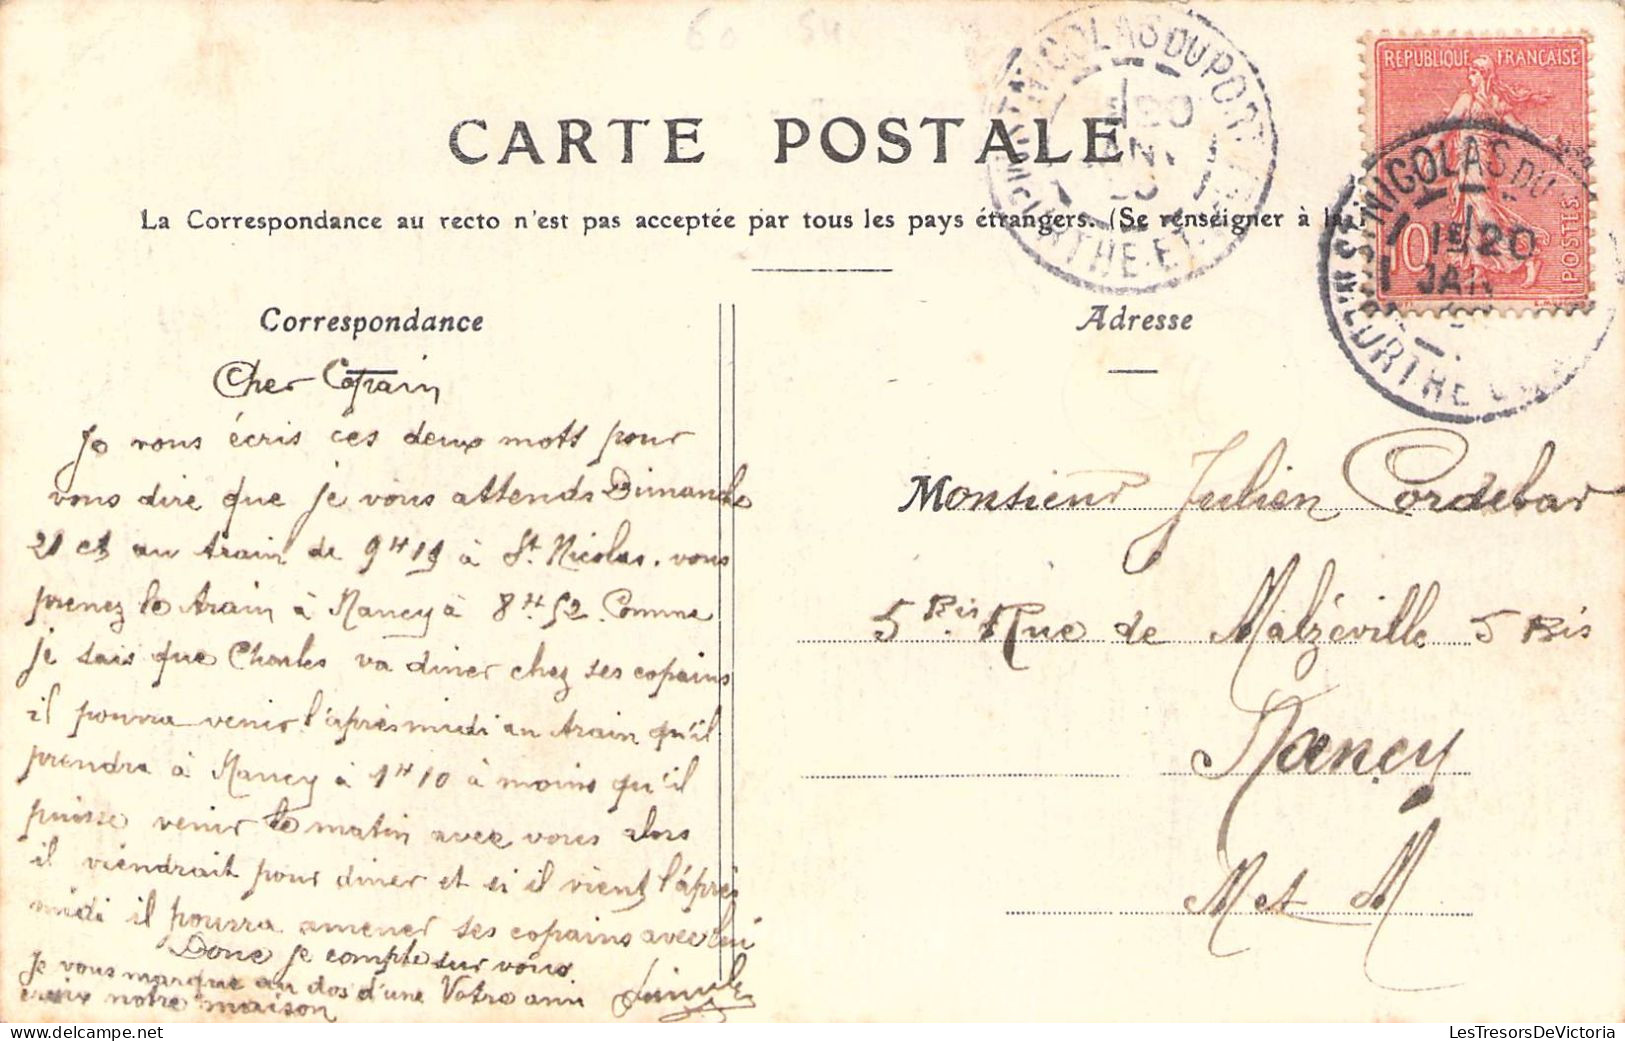 60 54
CARTE POSTALE
La Correspondance au recto n'est pas acceptée par tous les pays étrangers. (Se renseigner à la
REPUBLIQUE FRANÇAISE
10
POSTES
ST NICOLAS DU PORT
MEURTHE-ET-M
20
JANV
ST NICOLAS DU
MEURTHE
15 20
JAN
Correspondance
Cher Copain
Je vous écris ces deux mots pour
vous dire que je vous attends Dimanche
21 ct au train de 9H19 à St. Nicolas. vous
prenez le train à Nancy à 8H.52. Comme
je sais que Charles va diner chez ses copains
il pourra venir l'après midi au train qu'il
prendra à Nancy à 1H10 à moins qu'il
puisse venir le matin avec vous alors
il viendrait pour diner et si il vient l'après
midi il pourra amener ses copains avec lui
Donc je compte sur vous
Je vous marque au dos d'une Votre ami
croix notre maison
Adresse
Monsieur Julien Cordebar
5 Bis Rue de Malzéville 5 Bis
Nancy
M et M
LesTresorsDeVictoria